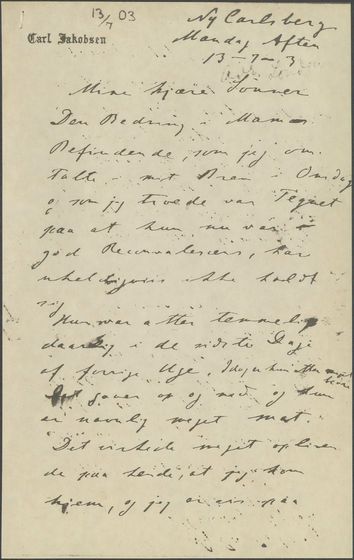 13/7 03
Carl Jakobsen
Ny Carlsberg
Mandag Aften
13-7-3
Mine kjære Sønner
Den Bedring i Mamas
Befindende, som jeg om
talte i mit Brev i Onsdag
og som jeg troede var Tegnet
paa at hun nu var i
god Reconvalescens, har
uheldigvis ikke holdt
sig
Hun var atter temmelig
daarlig i de sidste Dage
af forrige Uge,
gaaer op og ned og hun
er navnlig meget mat.
Det virkede meget oplivende
paa hende, at jeg kom
hjem, og jeg er vis paa